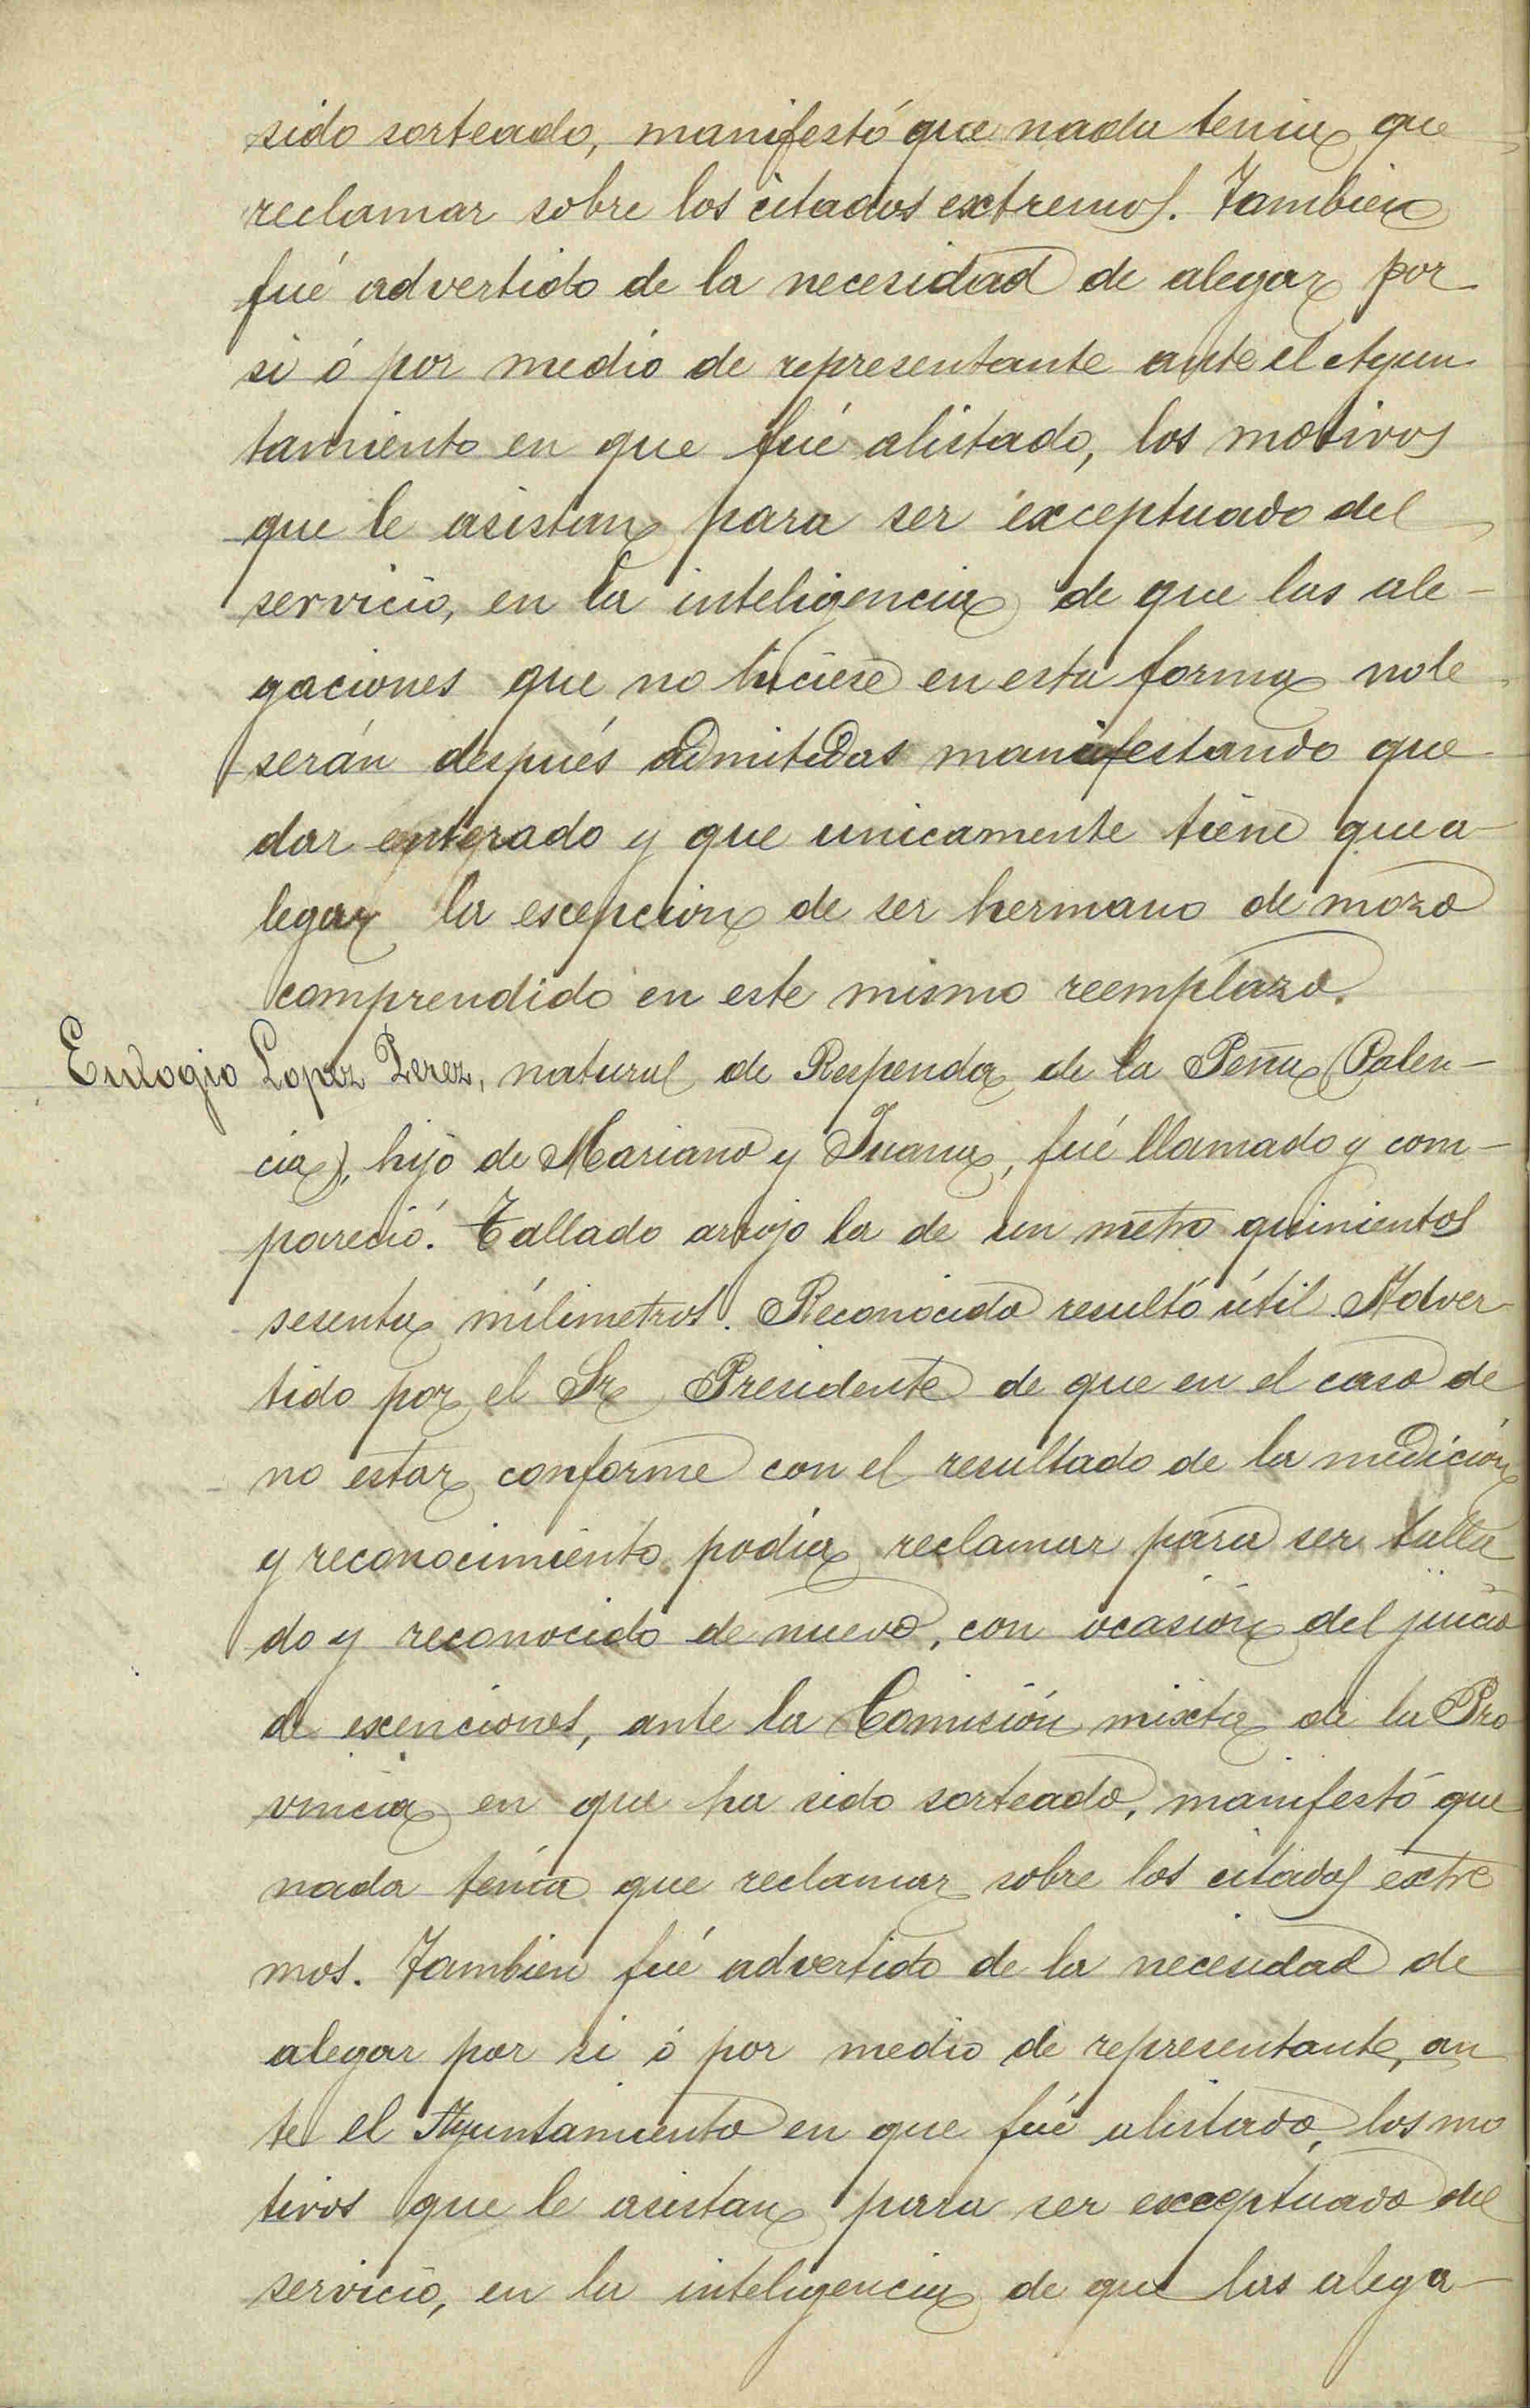 sido sorteado, manifestó que nada tenia que
reclamar sobre los citados extremos. Tambien
fué advertido de la necesidad de alegar por
si ó por medio de representante ante el Ayun-
tamiento en que fué alistado, los motivos
que le asistan para ser exceptuado del
servicio, en la inteligencia de que las ale-
gaciones que no hiciese en esta forma no le
serán después admitidas manifestando que
dar enterado y que unicamente tiene que a-
legar la escepcion de ser hermano de mozo
comprendido en este mismo reemplazo.
Eulogio Lopez Perez, natural de Respenda de la Peña (Palen-
cia), hijo de Mariano y Juana, fué llamado y com-
pareció. Tallado arrojo la de un metro quinientos
sesenta milimetros. Reconocido resultó útil. Adver-
tido por el Sr Presidente de que en el caso de
no estar conforme con el resultado de la medición
y reconocimiento podia reclamar para ser talla
do y reconocido de nuevo, con ocasión del juicio
de exenciones, ante la Comisión mixta de la Pro
vincia en que ha sido sorteado, manifestó que
nada tenía que reclamar sobre los citados extre
mos. Tambien fué advertido de la necesidad de
alegar por si ó por medio de representante, an
te el Ayuntamiento en que fué alistado, los mo
tivos que le asistan para ser exceptuado del
servicio, en la inteligencia de que las alega-